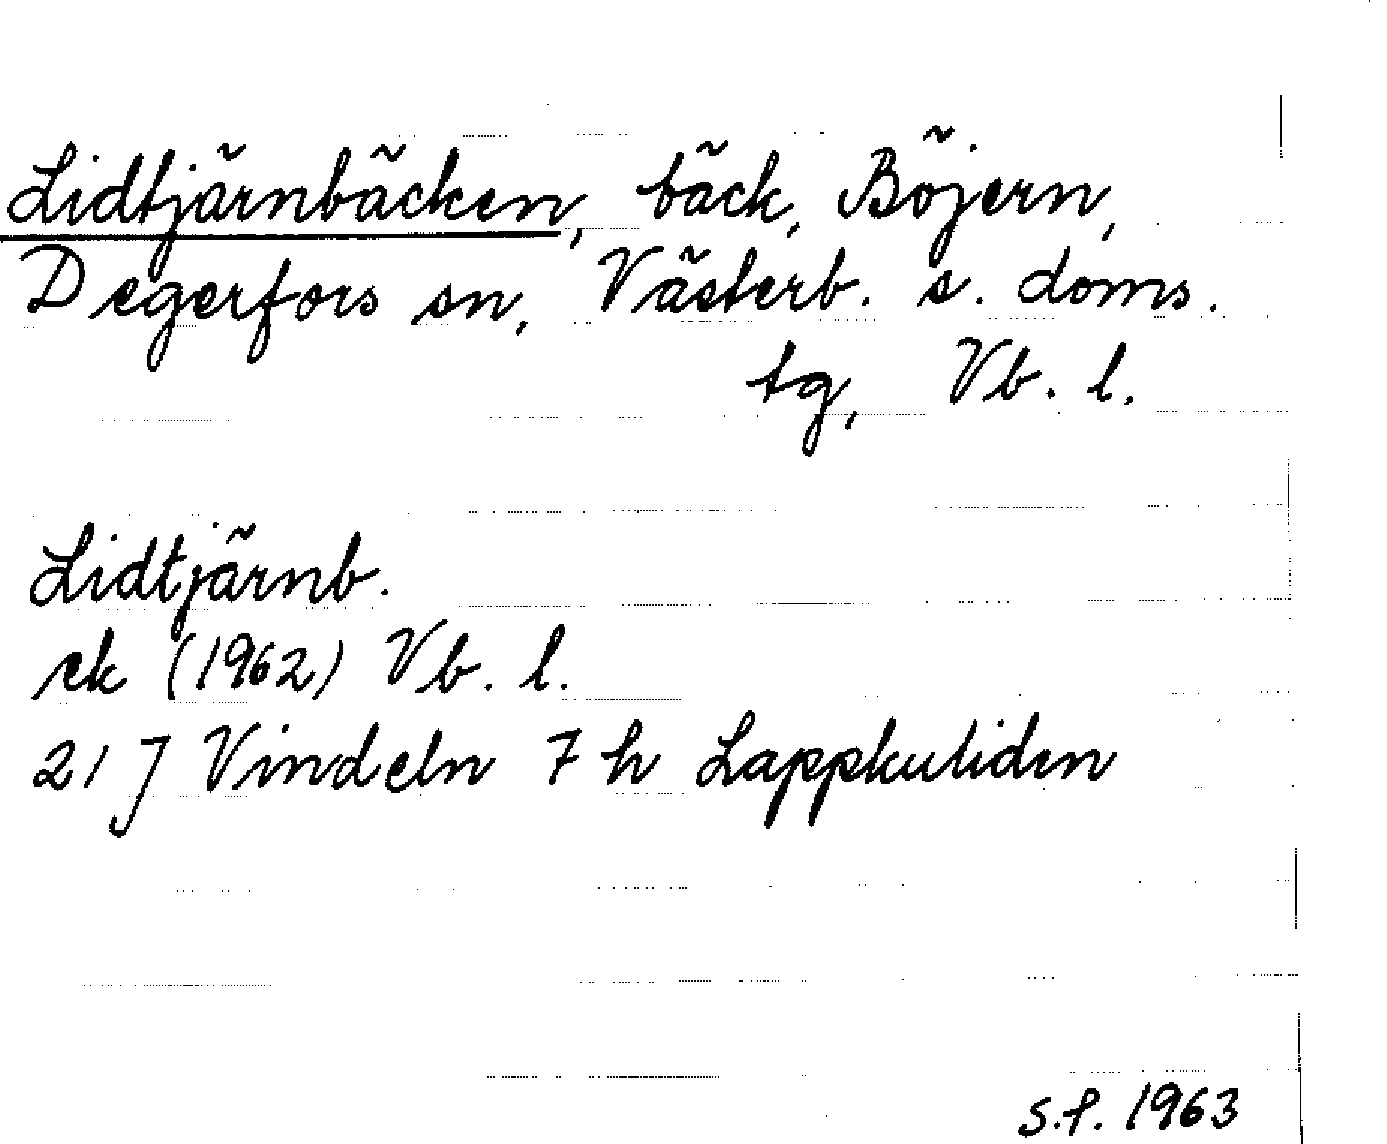 Lidtjärnbäcken, bäck, Böjern,
Degerfors sn, Västerb. s. doms.
tg, Vb. l.
Lidtjärnb.
ek (1962) Vb. l.
21 J Vindeln 7 h Lappkuliden
S.f. 1963